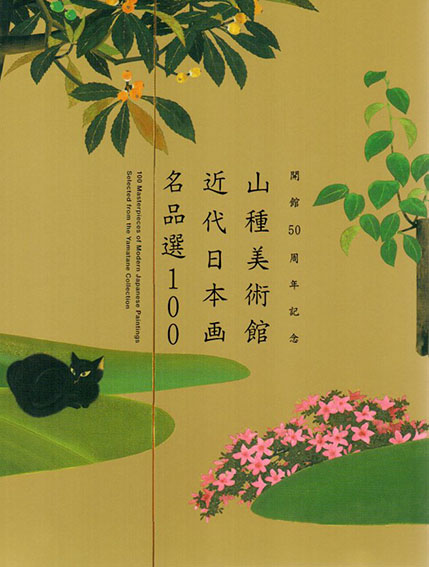 開館50周年記念
山種美術館
近代日本画
名品選100
100 Masterpieces of Modern Japanese Paintings
Selected from the Yamatane Collection